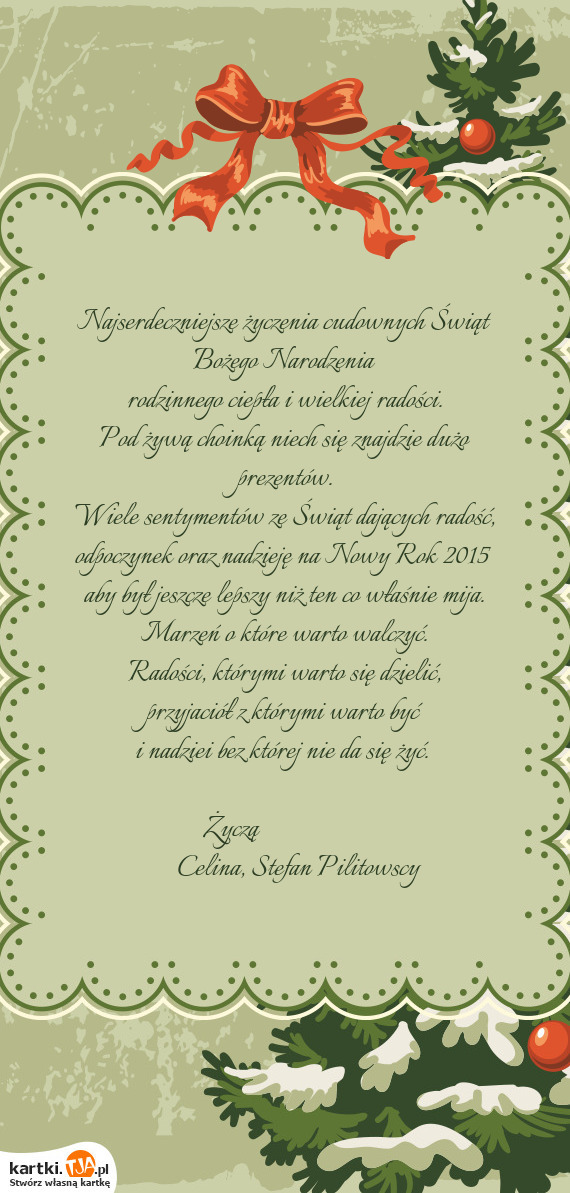 Najserdeczniejsze życzenia cudownych Świąt
Bożego Narodzenia
rodzinnego ciepła i wielkiej radości.
Pod żywą choinką niech się znajdzie dużo
prezentów.
Wiele sentymentów ze Świąt dających radość,
odpoczynek oraz nadzieję na Nowy Rok 2015
aby był jeszcze lepszy niż ten co właśnie mija.
Marzeń o które warto walczyć.
Radości, którymi warto się dzielić,
przyjaciół z którymi warto być
i nadziei bez której nie da się żyć.
Życzą
Celina, Stefan Pilitowscy
kartki.TJA.pl
Stwórz własną kartkę